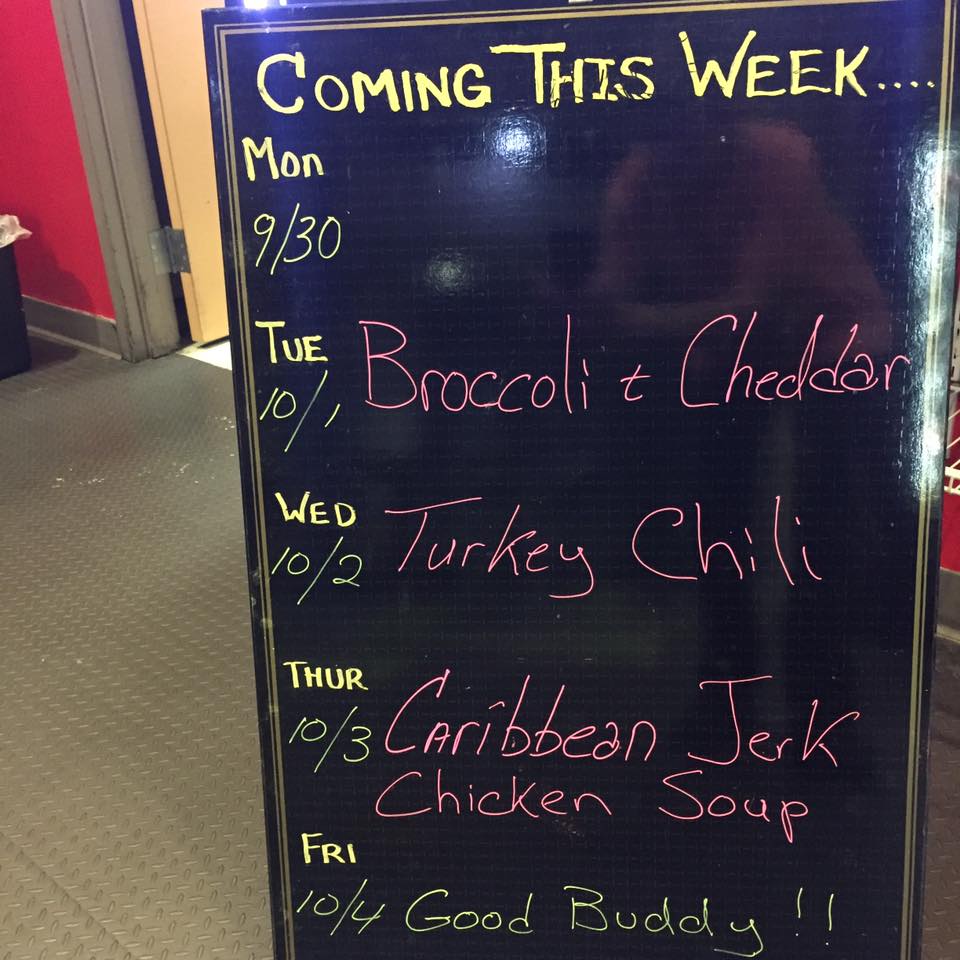 COMING THIS WEEK....
Mon
9/30
TUE
10/1 Broccoli & Cheddar
WED
10/2 Turkey Chili
THUR
10/3 Caribbean Jerk
Chicken Soup
FRI
10/4 Good Buddy!!